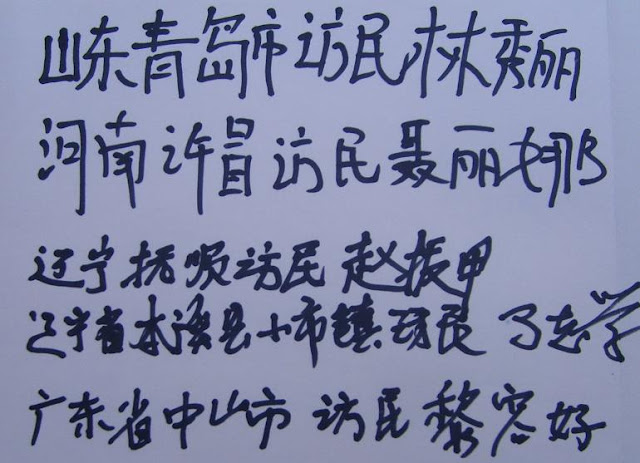 山东青岛市访民林秀丽
河南许昌访民聂丽娜
辽宁抚顺访民赵振甲
辽宁省本溪县小市镇访民
广东省中山市访民黎容好